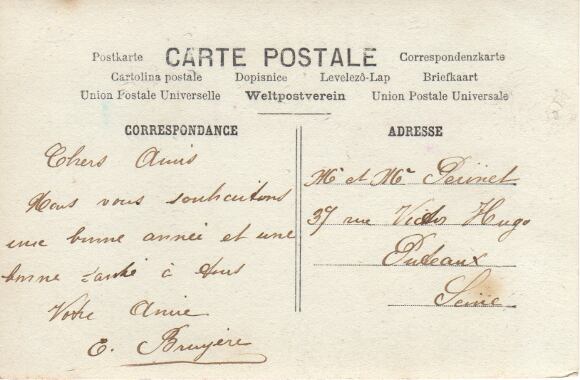 Postkarte CARTE POSTALE Correspondenzkarte
Cartolina postale Dopisnice Levelező-Lap Briefkaart
Union Postale Universelle Weltpostverein Union Postale Universale
CORRESPONDANCE
Chers Amis
Nous vous souhaitons
une bonne année et une
bonne santé à tous
Votre Amie
E. Bruyère
ADRESSE
Mr et Mme
37 rue Victor Hugo
Puteaux
Seine